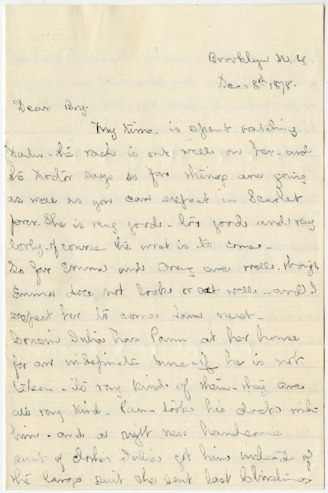 Brooklyn N.Y.
Dec 8th 1878.
Dear Boy.
My time is spent watching
the rash is out well on her - and
the Doctor says so far things are going
as well as you can expect in Scarlet
fever. She is very good - too good and very
lovely. of course the worst is to come -
So far Emma and are well, though
Emma does not look or eat well - and I
expect her to come down next -
Cousin Julia has Pam at her house
for an indefinite time if he is not
. It's very kind of them - they are
all very kind. Pam took his clocks with
him - and a right new handsome
suit of clothes Julia got him instead of
the large suit she sent last Christmas